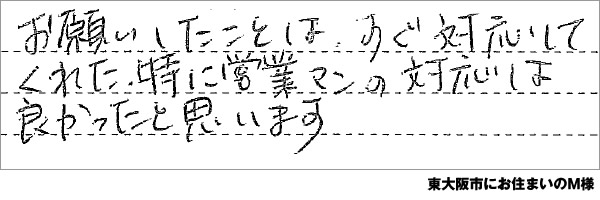 お願いしたことは、すぐ対応して
くれた、特に営業マンの対応は
良かったと思います
東大阪市にお住まいのM様